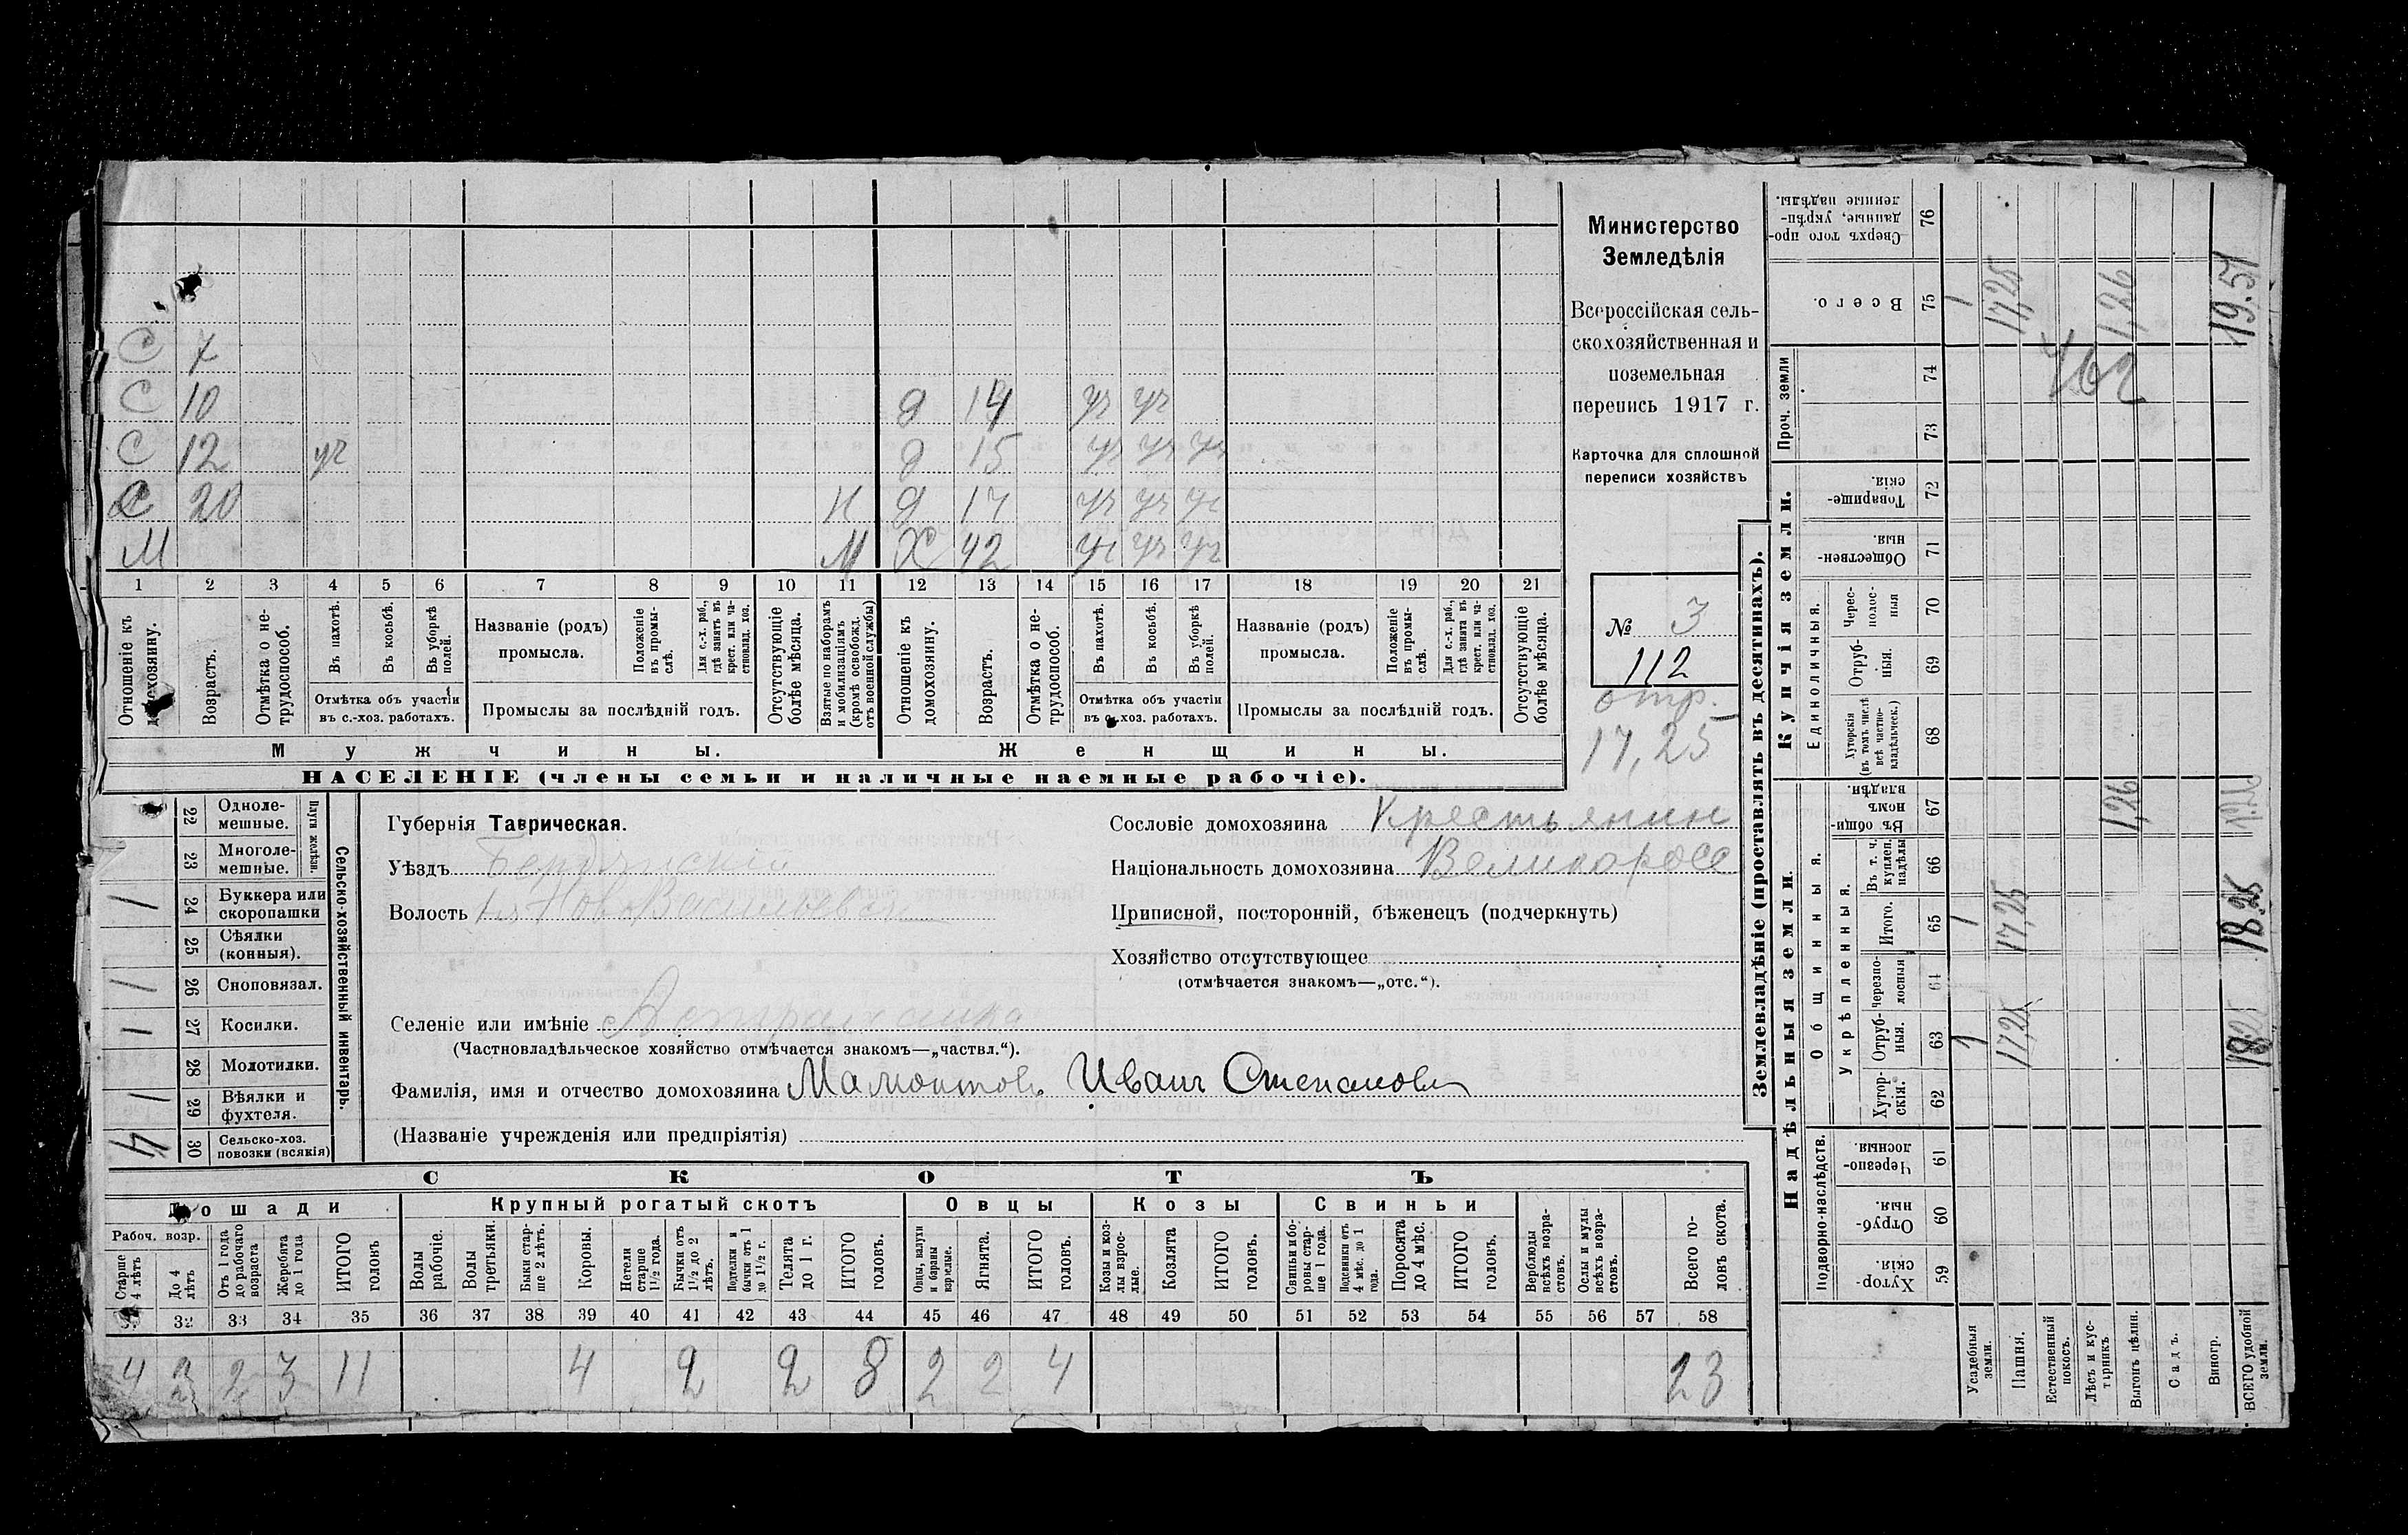 С 7
С 10 д 14 уч уч
С 12 уч д 15 уч уч уч
С 20 Н д 17 уч уч уч
М М Х 42 уч уч уч
1 2 3 4 5 6 7 8 9 10 11 12 13 14 15 16 17 18 19 20 21
Отношеніе къ домохозяину.
Возрастъ.
Отмѣтка о не-
трудоспособ.
Въ пахотѣ.
Въ косьбѣ.
Въ уборкѣ
полей.
Отмѣтка объ участіи
въ с.-хоз. работахъ.
Названіе (родъ)
промысла.
Положеніе
въ промы-
слѣ.
Для с.-х. раб.,
гдѣ занятъ въ
крест. или ча-
стновлад. хоз.
Промыслы за послѣдній годъ.
Отсутствующіе
болѣе мѣсяца.
Взятые по наборамъ
и мобилизаціямъ
(кромѣ освобожд.
отъ военной службы)
Отношеніе къ
домохозяину.
Возрастъ.
Отмѣтка о не-
трудоспособ.
Въ пахотѣ.
Въ косьбѣ.
Въ уборкѣ
полей.
Отмѣтка объ участіи
въ с.-хоз. работахъ.
Названіе (родъ)
промысла.
Положеніе
въ промы-
слѣ.
Для с.-х. раб.,
гдѣ занята въ
крест. или ча-
стновлад. хоз.
Промыслы за послѣдній годъ.
Отсутствующіе
болѣе мѣсяца.
Мужчины. Женщины.
НАСЕЛЕНІЕ (члены семьи и наличные наемные рабочіе).
Министерство
Земледѣлія
Всероссійская сель-
скохозяйственная и
поземельная
перепись 1917 г.
Карточка для сплошной
переписи хозяйствъ
№ 3
112
отр.
17,25
22 Одноле-
мешные.
23 Многоле-
мешные.
Плуги желѣзн.
1 24 Буккера или
скоропашки
25 Сѣялки
(конныя).
1 26 Сноповязал.
1 27 Косилки.
28 Молотилки.
1 29 Вѣялки и
фухтеля.
4 30 Сельско-хоз.
повозки (всякія)
Сельско-хозяйственный инвентарь.
Губернія Таврическая.
Уѣздъ Бердянскій
Волость Нов-Васильевск
Селеніе или имѣніе Астраханка
(Частновладѣльческое хозяйство отмѣчается знакомъ—„частвл.“).
Фамилія, имя и отчество домохозяина Мамонтовъ Иванъ Степановъ
(Названіе учрежденія или предпріятія)
Сословіе домохозяина Крестьянин
Національность домохозяина Великоросс
Приписной, посторонній, бѣженецъ (подчеркнуть)
Хозяйство отсутствующее
(отмѣчается знакомъ—„отс.“).
СКОТЪ
Лошади Крупный рогатый скотъ Овцы Козы Свиньи
Рабоч. возр.
Старше
4 лѣтъ
До 4
лѣтъ
Отъ 1 года
до рабочаго
возраста
Жеребята
до 1 года
ИТОГО
головъ
Волы
рабочіе.
Волы
третьяки.
Быки стар-
ше 2 лѣтъ.
Коровы.
Нетели
старше
1½ года.
Бычки отъ
1½ до 2
лѣтъ.
Подтелки и
бычки отъ 1
до 1½ г.
Телята
до 1 г.
ИТОГО
головъ.
Овцы, валухи
и бараны
взрослые.
Ягнята.
ИТОГО
головъ.
Козы и коз-
лы взрос-
лые.
Козлята
ИТОГО
головъ.
Свиньи и бо-
ровы стар-
ше 1 года.
Подсвинки отъ
4 мѣс. до 1
года.
Поросята
до 4 мѣс.
ИТОГО
головъ.
Верблюды
всѣхъ возра-
стовъ.
Ослы и мулы
всѣхъ возра-
стовъ.
Всего го-
ловъ скота.
32 33 34 35 36 37 38 39 40 41 42 43 44 45 46 47 48 49 50 51 52 53 54 55 56 57 58
4 2 2 3 11 4 2 2 8 2 2 4 23
Землевладѣніе (проставлять въ десятинахъ).
Надѣльныя земли. Купчія земли. Проч. земли
Подворно-наслѣдств.
Общинныя.
Укрѣпленныя.
Единоличныя.
Хутор-
скія. 59
Отруб-
ныя. 60
Черезпо-
лосныя. 61
Хутор-
скія. 62
Отруб-
ныя. 63
Черезпо-
лосныя 64
Итого. 65
Въ т. ч.
куплен.
надѣлы 66
Въ общи-
номъ
владѣн. 67
Хуторскія
(въ томъ числѣ
всѣ частно-
владѣльческ.) 68
Отруб-
ныя. 69
Черес-
полос-
ныя 70
Обществен-
ныя. 71
Товарище-
скія. 72
73
74
Всего. 75
Сверхъ того про-
данные, укрѣп-
ленные надѣлы. 76
Усадебныя
земли. 1 1 1
Пашня. 17,25 17,25 17,25
Естественный
покосъ.
Лѣсъ и кус-
тарникъ
Выгонъ цѣлин. 1,26 1,26
Садъ.
Виногр.
ВСЕГО удобной
земли. 18.25 18.25 1.26 19.51
462